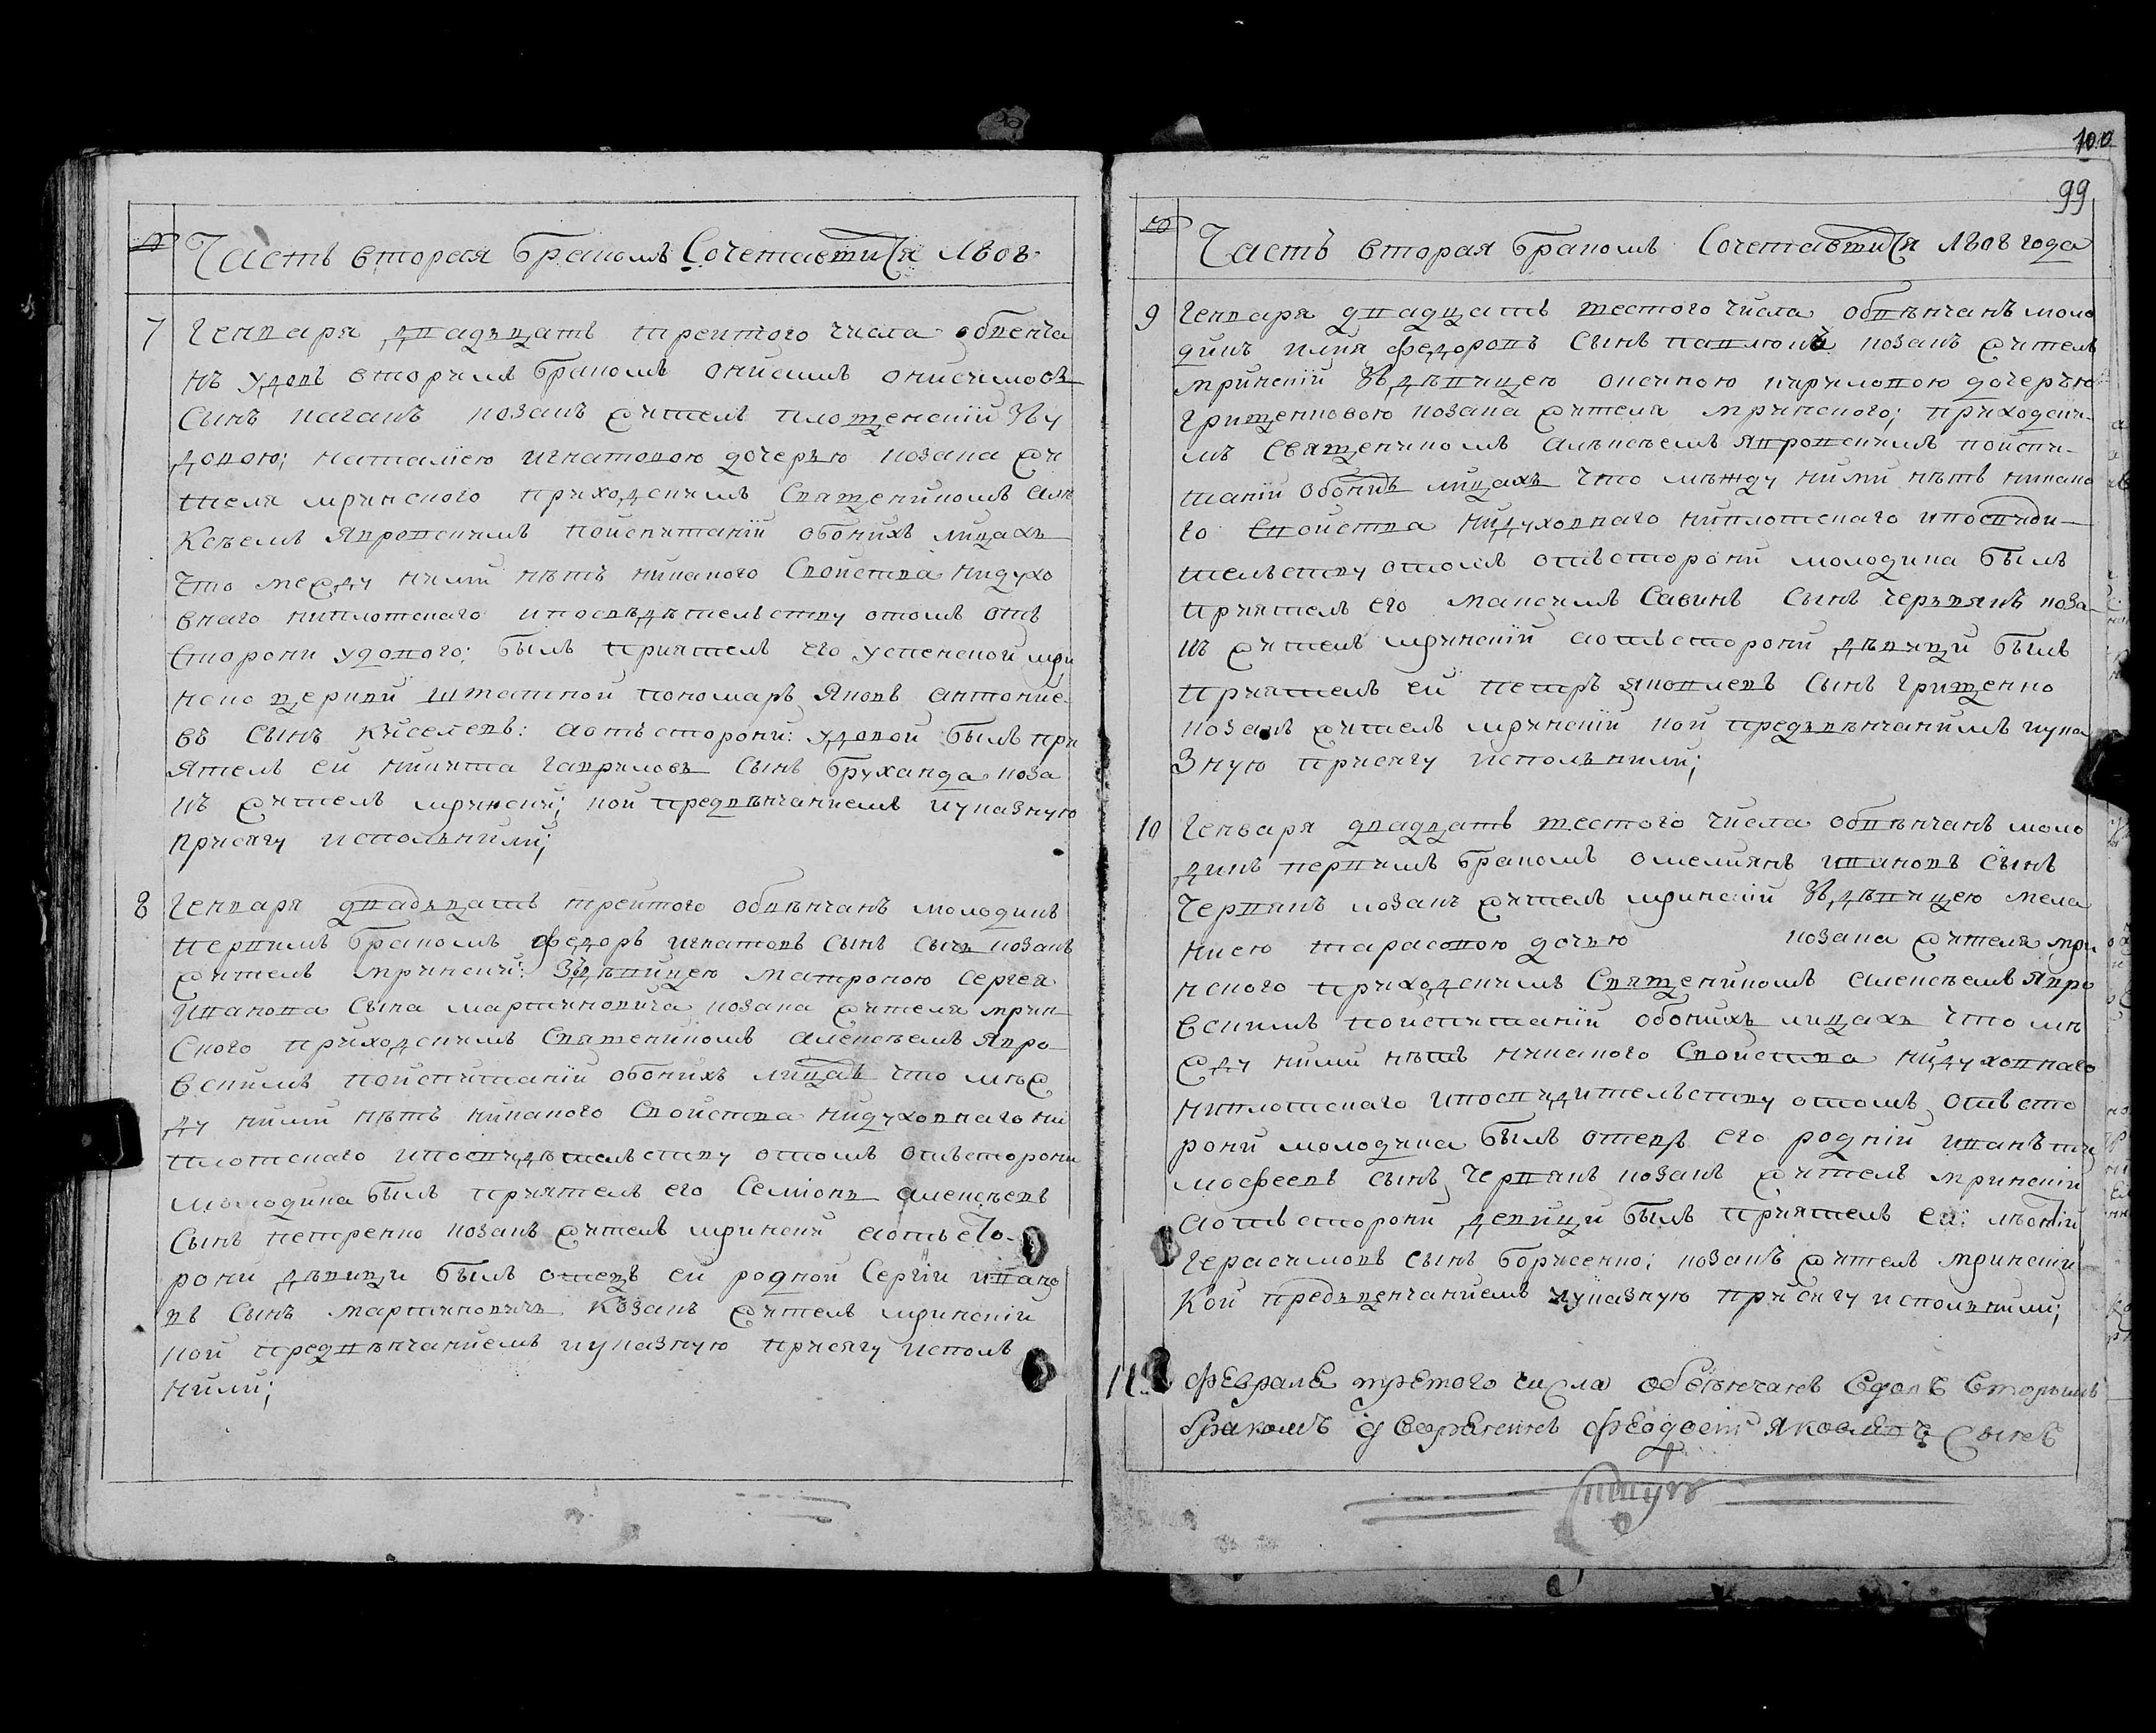 100
99
№ Часть вторая бракомъ Сочетавшися 1808
7 Генваря двадъцать третого числа обвенча
нъ удовъ вторимъ бракомъ онисимъ онисимовъ
Сынъ каганъ козакъ житель площенскїй Зъу
довою; наталїею игнатовою дочерью козака жи
теля мринского приходскимъ Священикомъ але
Ксѣемъ Явровскимъ поиспитанїи обоихъ лицахъ
что между ними нѣтъ никакого Свойства нидухо
внаго ниплотскаго ипосвѣдѣтельству отомъ отъ
Сторони удового; былъ приятель его успенской мри
нско церкви штатной пономарь Яковъ антоние
въ Сынъ Киселевъ: аотъсторони: удовой былъ при
ятель ей никита гавриловъ Сынъ бруханда коза
къ житель мринский; кои предвѣнчаниемъ иуказную
присягу исполънили;
8 Генваря двадъцать третого обвѣнчанъ молодикъ
первимъ бракомъ федоръ игнатовъ Сынъ Сычъ козакъ
житель мринский: Здѣвицею матроною Сергея
иванова Сына мартиновича козака жителя мрин
Ского приходскимъ Священикомъ алексѣемъ Явро
вскимъ поиспитанїи обоихъ лицахъ что мѣж
ду ними нѣтъ никакого Свойства нидуховнаго ни
плотскаго ипосвидѣтельству отомъ отъсторони
молодика былъ приятель его Семїонъ алексѣевъ
Сынъ петренко козакъ житель мрински аотъсто
рони дѣвици былъ отецъ ей родной Сергїй ивано
въ Сынъ мартиновичъ Козакъ житель мринскїй
кои предвѣнчаниемъ иуказную присягу исполъ
нили;
№ Часть вторая бракомъ Сочетавшися 1808 года
9 Генваря двадцать шестого числа обвѣнчанъ моло
дикъ илия федоровъ Сынъ козакъ житель
мринскїй Здѣвицею кириловою дочерью
Грищенковою козака жителя мринского; приходски
мъ Священикомъ алексѣемъ Явровскимъ поиспи
танїи обоихъ лицахъ что мѣжду ними нѣтъ никако
го Свойства нидуховнаго ниплотскаго ипосвиди
тельству отомъ отъсторони молодика былъ
приятель его максимъ Савинъ Сынъ червякъ коза
къ житель мринскїй аотъсторони дѣвици былъ
приятель ей петръ яковлевъ Сынъ Грищенко
козакъ житель мринскїй кои предъвѣнчанимъ иука
Зную присягу исполънили;
10 Генваря двадцать шестого числа обвѣнчанъ моло
дикъ первимъ бракомъ омелиянъ ивановъ Сынъ
Червякъ козакъ житель мринский Здѣвицею мела
ниею тарасовою дочью козака жителя мри
нского приходскимъ Священикомъ алексѣемъ Явро
вскимъ поиспитанїи обоихъ лицахъ что мѣ
жду ними нѣтъ никакого Свойства нидуховнаго
ниплотскаго ипосвидительству отомъ отъсто
рони молодика былъ отецъ его родній иванъ ти
мофеевъ Сынъ Червякъ козакъ житель мринскїй
аотъсторони девици былъ приятель ей:
Герасимовъ Сынъ борисенко; козакъ житель мринскїй
Кои предъвенчаниемъ иуказную присягу исполънили;
11 февраля третого числа обвѣнчанъ вдовъ вторимъ
бракомъ Феодосїй яковлевъ Сынъ